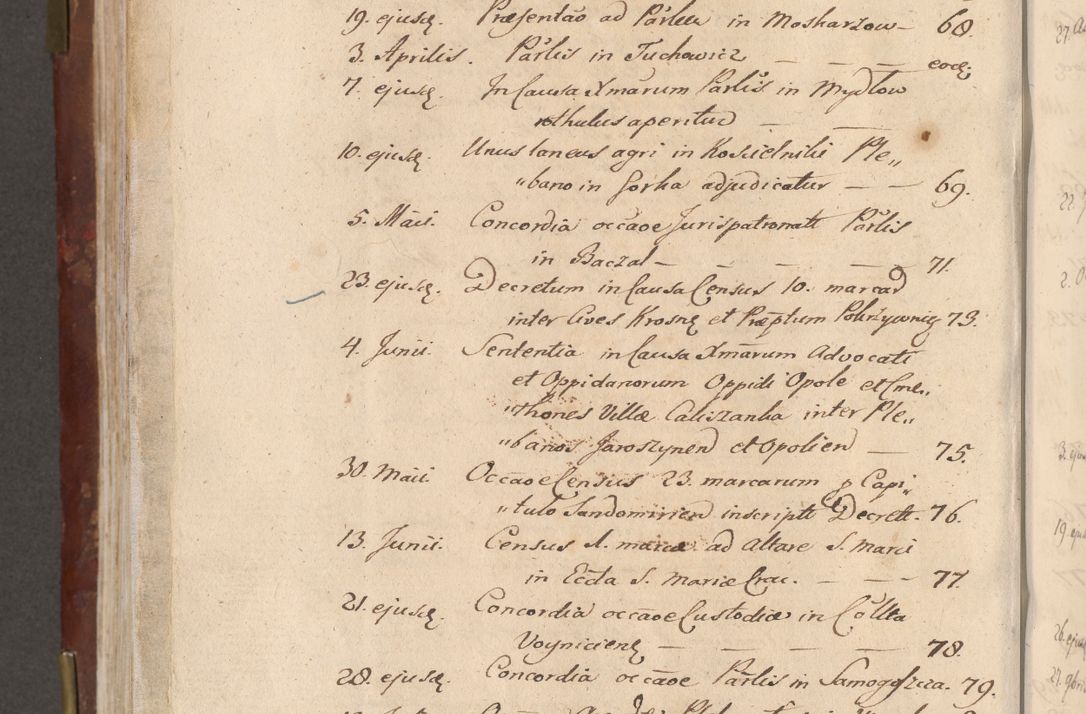 19. ejusq̃. Præsentão ad Pãrlem in Moskarzow – 68.
3. Aprilis. Pãrlis in Tuchowicz – – – eoq̃.
7. ejusq̃. In Causa Xmãrum Pãrlis in Mydlow
rothulus aperitur – –
10. ejusq̃. Unus laneus agri in Koscielniki Ple„
„bano in Gorka adjudicatur – – 69.
5. Maii. Concordia occãoe Jurispatronatt Pãrlis
in Baczal – – – – 71.
23. ejusq̃. Decretum in Causa Census 10. marcar
inter Cives Krosnẽ et Præptum Pokrzywnicz 73.
4. Junii. Sententia in Causa Xmãrum Advocati
et Oppidanorum Oppidi Opole et Cme„
„thones Villæ Caliszanka inter Ple„
„banos Jaroszynen et Opolien – 75.
30. Maii. Occãoe Census 23. marcarum p Capi„
„tulo Sandomirien inscripti Decrett. 76.
13. Junii. Census 1. marcæ ad Altare S. Marci
in Eccla S. Mariæ Crac. – – – 77.
21. ejusq̃. Concordia occãoe Custodiæ in Collta
Voyniciens – – – – 78.
28. ejusq̃. Concordia occãoe Pãrlis in Samogoszcza. 79.